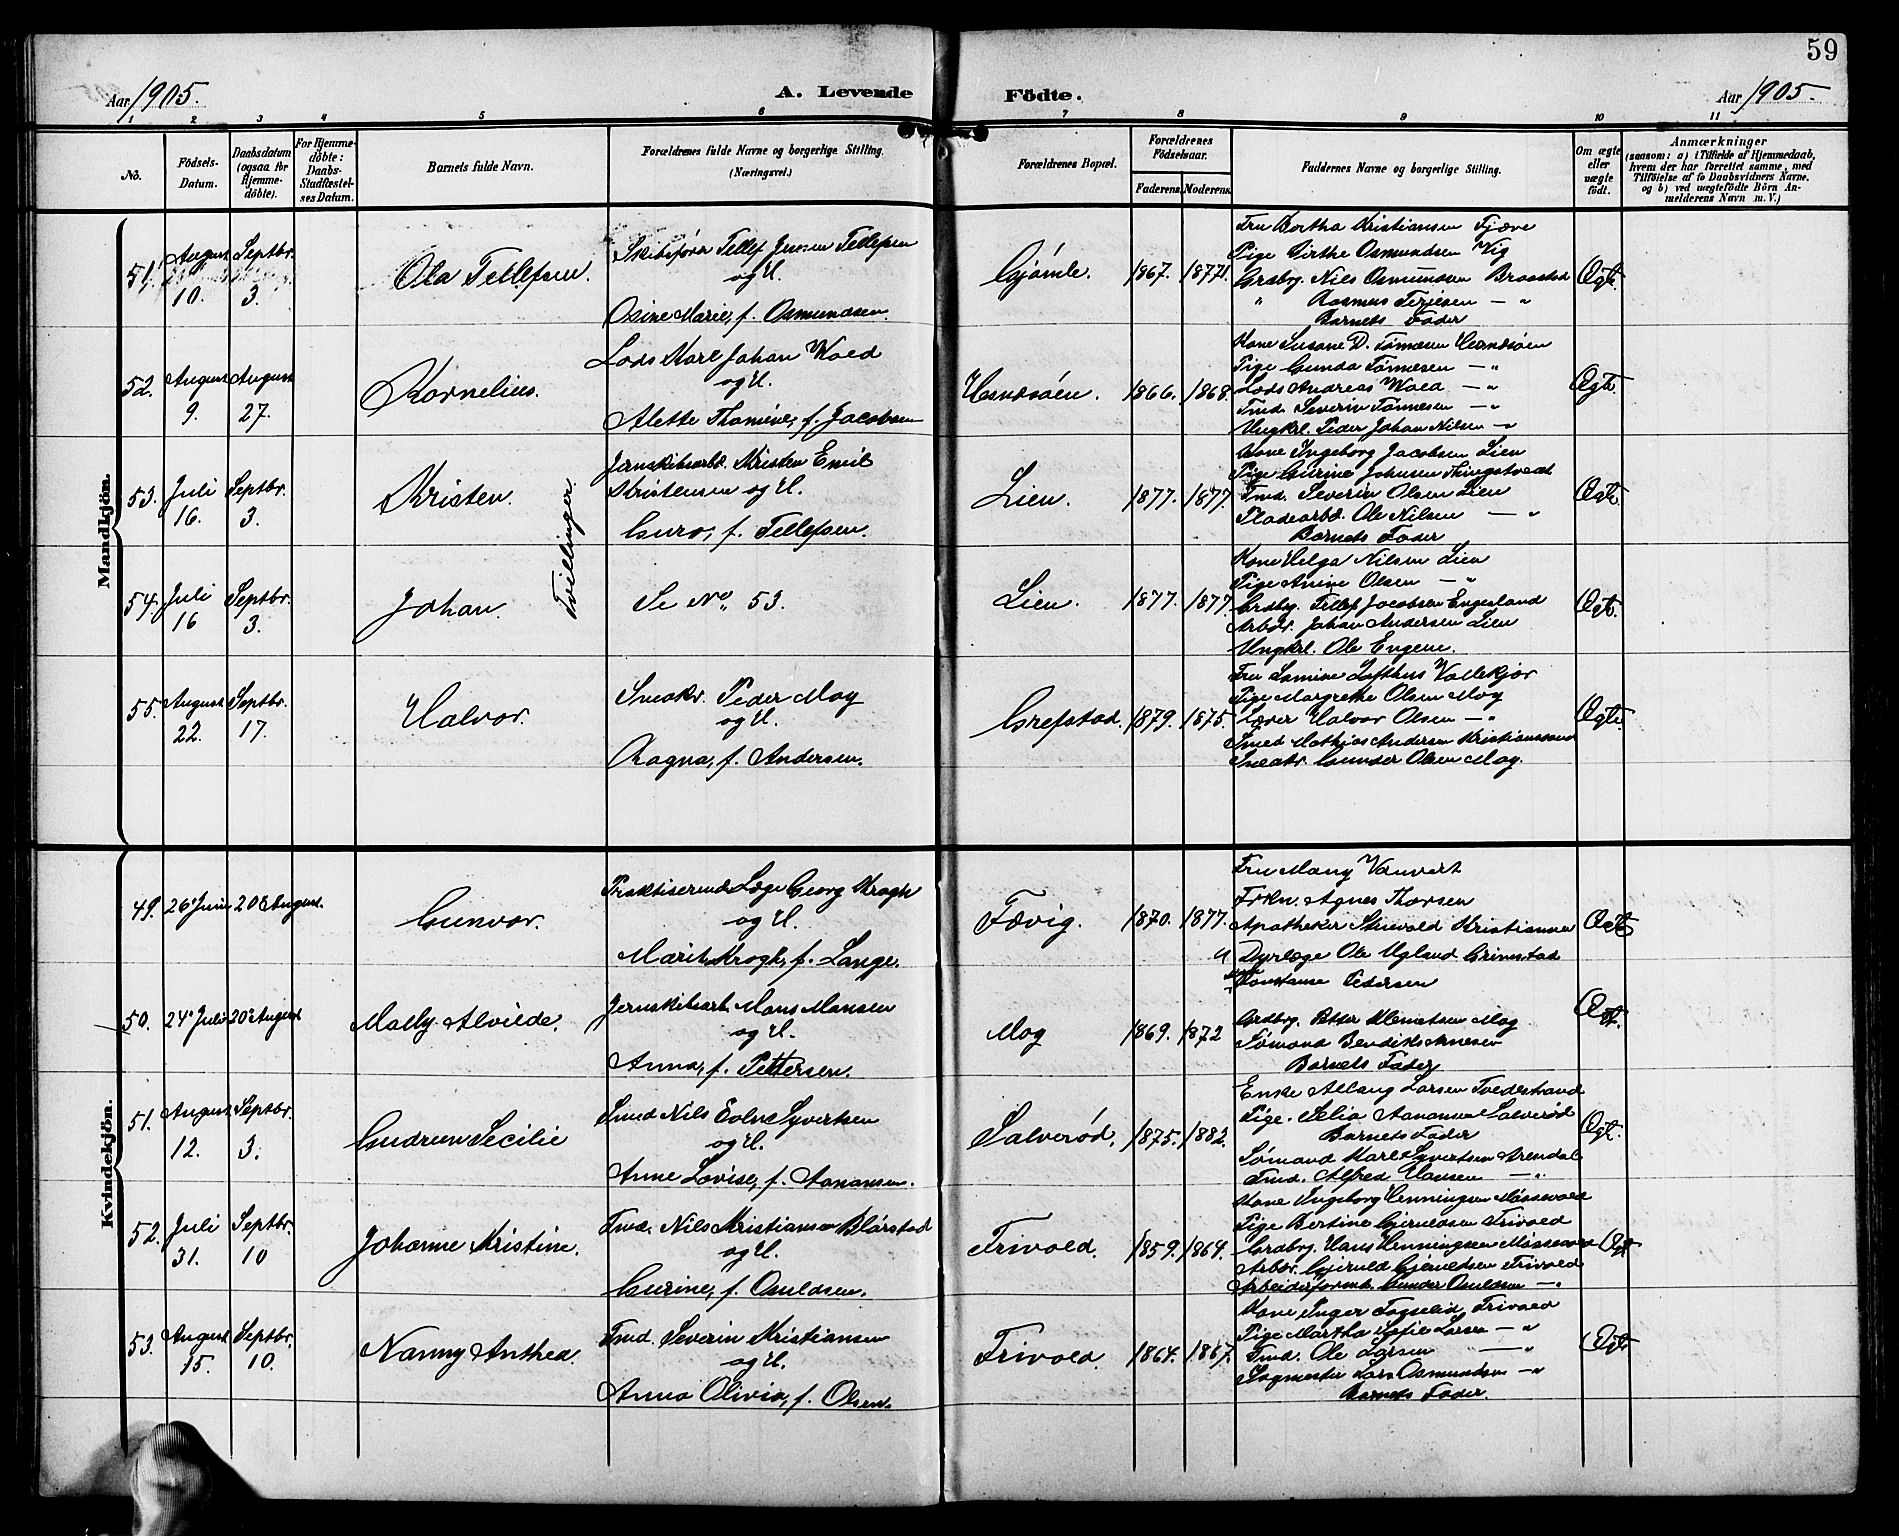 59
Aar 1905.
A. Levende
Födte.
Aar 1905.
1 2 3 4 5 6 7 8 9 10 11
No.
Födsels-
Datum.
Daabsdatum
(ogsaa for
Hjemme-
döbte).
For Hjemme-
döbte:
Daabs-
Stadfæstel-
ses Datum.
Barnets fulde Navn.
Forældrenes fulde Navne og borgerlige Stilling.
(Næringsvei.)
Forældrenes Bopæl.
Forældrenes
Födselsaar.
Faderens. Moderens.
Faddernes Navne og borgerlige Stilling.
Om ægte
eller
uægte
födt.
Anmærkninger
(saasom: a) i Tilfælde af Hjemmedaab,
hvem der har forrettet samme, med
Tilföielse af to Daabsvidners Navne,
og b) ved uægtefödte Börn An-
melderens Navn m. V.)
Mandkjön.
51. August 10. Septbr. 3.
Ola Tellefsen.
Skibsfører Tellef Jensen Tellefsen
og H.
Osine Marie, f. Osmundsen.
Gjømle. 1867. 1877.
Fru Bertha Kristiansen Fjære
Pige Girthe Osmundsen Vig
Grdbrg. Nils Osmundsen Braastad
" Rasmus Terjesen — "
Barnets Fader
Ægte.
52. August 9. August 27.
Kornelius.
Lods Karl Johan Wold
og H.
Alette Thomine, f. Jacobsen
Hesnesøen. 1866. 1868.
Kone Susane D. Tønnesen Hesnesøen
Pige Gunda Tønnesen — "
Lods Andreas Wold — "
Tmd. Severin Tønnesen — "
Ungkrl. Peder Johan Nilsen — "
Ægte.
53. Juli 16. Septbr. 3.
Kristen.
Tvillinger.
Jernskibsarb. Kristen Emil
Kristensen og H.
Guro, f. Tellefsen.
Lien. 1877. 1877.
Kone Ingeborg Jacobsen Lien
Pige Gurine Johnsen Thingstveit
Tmd. Severin Olsen Lien
Pladearb. Ole Nilsen — "
Barnets Fader
Ægte.
54. Juli 16 Septbr. 3.
Johan.
Se No. 53.
Lien. 1877. 1877.
Kone Helga Nilsen Lien
Pige Anine Olsen — "
Grdbrg. Tellef Jacobsen Engesland
Arbdr. Johan Andersen Lien
Ungkrl. Ole Engene.
Ægte.
55. August 22. Septbr. 17.
Halvor.
Snedkr. Peder Moy
og H.
Ragna, f. Andersen.
Grefstad. 1879. 1875.
Fru Lofthus Vallekjær
Pige Margrethe Olsen Moy
Lærer Halvor Olsen — "
Smed Mathias Andersen Kristianssand
Snedkr. Gunder Olsen Moy.
Ægte.
Kvindekjön.
49. 26' Juni 20' August.
Gunvor.
Praktiserende Læge Georg Krogh
og H.
Marit Krogh, f. Lange.
Fævig. 1870. 1877.
Fru Mary
Frkn. Agnes Thorsen
Apotheker Kristiania
Dyrlæge Ole Ugland Grimstad
Ægte
50. 24' Juli 20' August
Molly Alvilde.
Jernskibsarb. Mons Monsen
og H.
Anna, f. Pettersen.
Moy 1869. 1872
Konstanse Pedersen
Grdbrg. Petter Klemetsen Moy
Sømand Bendiks
Barnets Fader
Ægte.
51. August 12. Septbr. 3.
Gudrun Secilie
Smed Nils Syvertsen
og H.
Anne Lovise, f. Aanonsen.
Salverød. 1875. 1882.
Enke Larsen Tvedestrand
Pige. Selia Aanonsen Salverød
Barnets Fader
Sømand Karl Syvertsen Arendal
Tmd. Alfred Hansen — "
Ægte.
52. Juli 31. Septbr. 10
Johanne Kristine.
Tmd. Nils Kristiansen Blørstad
og H.
Gurine, f. Osuldsen.
Frivold. 1859. 1869.
Kone Ingeborg Henningsen
Pige Bertine Gjeruldsen Frivold
Grdbrg. Hans Henningsen
Arbdr. Gjeruld Gjeruldsen Frivold
Arbeidsformd. Gunder Osuldsen — "
Ægte
53. August 15. Septbr. 10.
Nanny Anthea.
Tmd. Severin Kristiansen
og H.
Anna Olivia, f. Olsen.
Frivold. 1864. 1867.
Kone Inger Frivold
Pige Martha Sofie Larsen — "
Tmd. Ole Larsen — "
Sagmester Lars Osmundsen — "
Barnets Fader.
Ægte